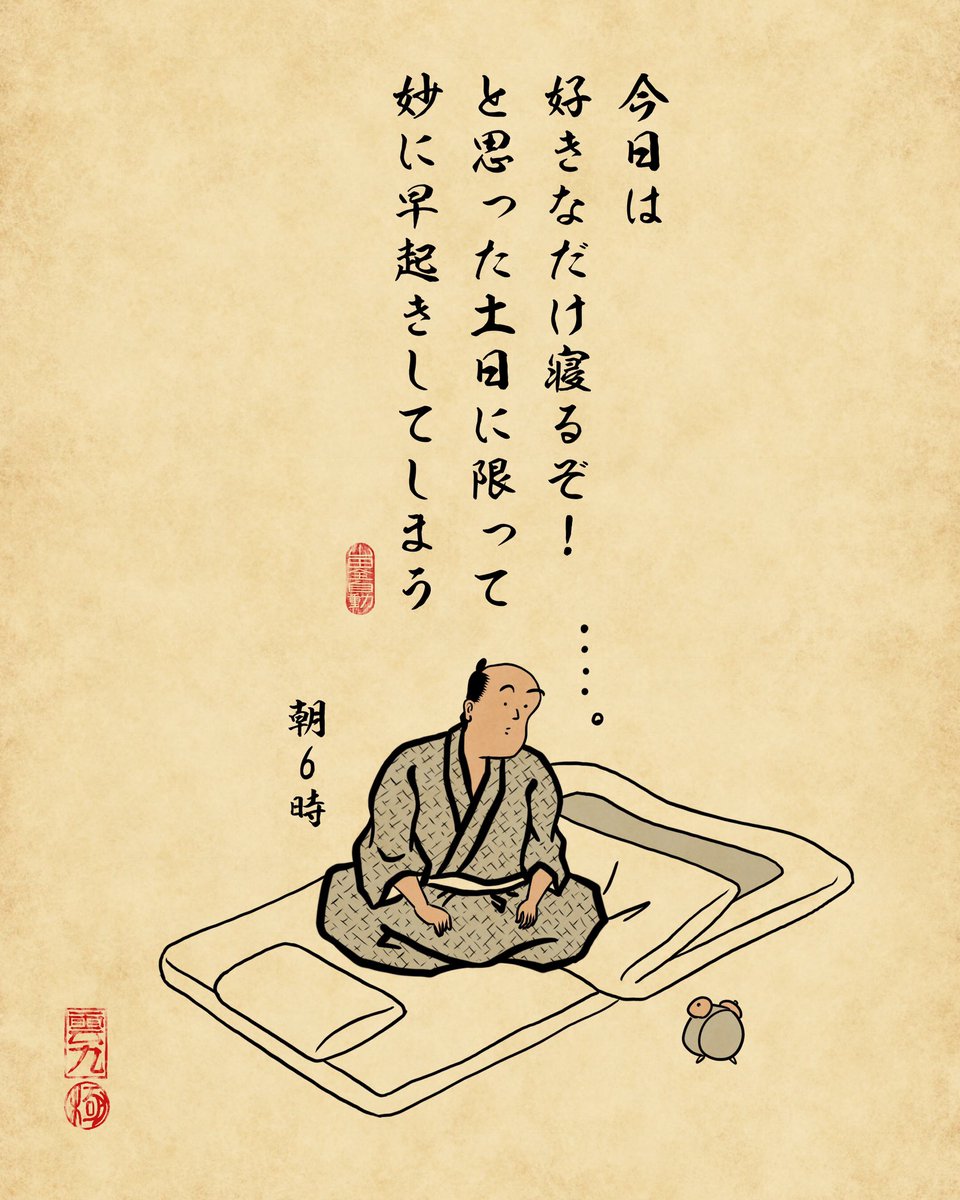 今日は
好きなだけ寝るぞ!
と思った土日に限って
妙に早起きしてしまう
・・・・。
朝6時